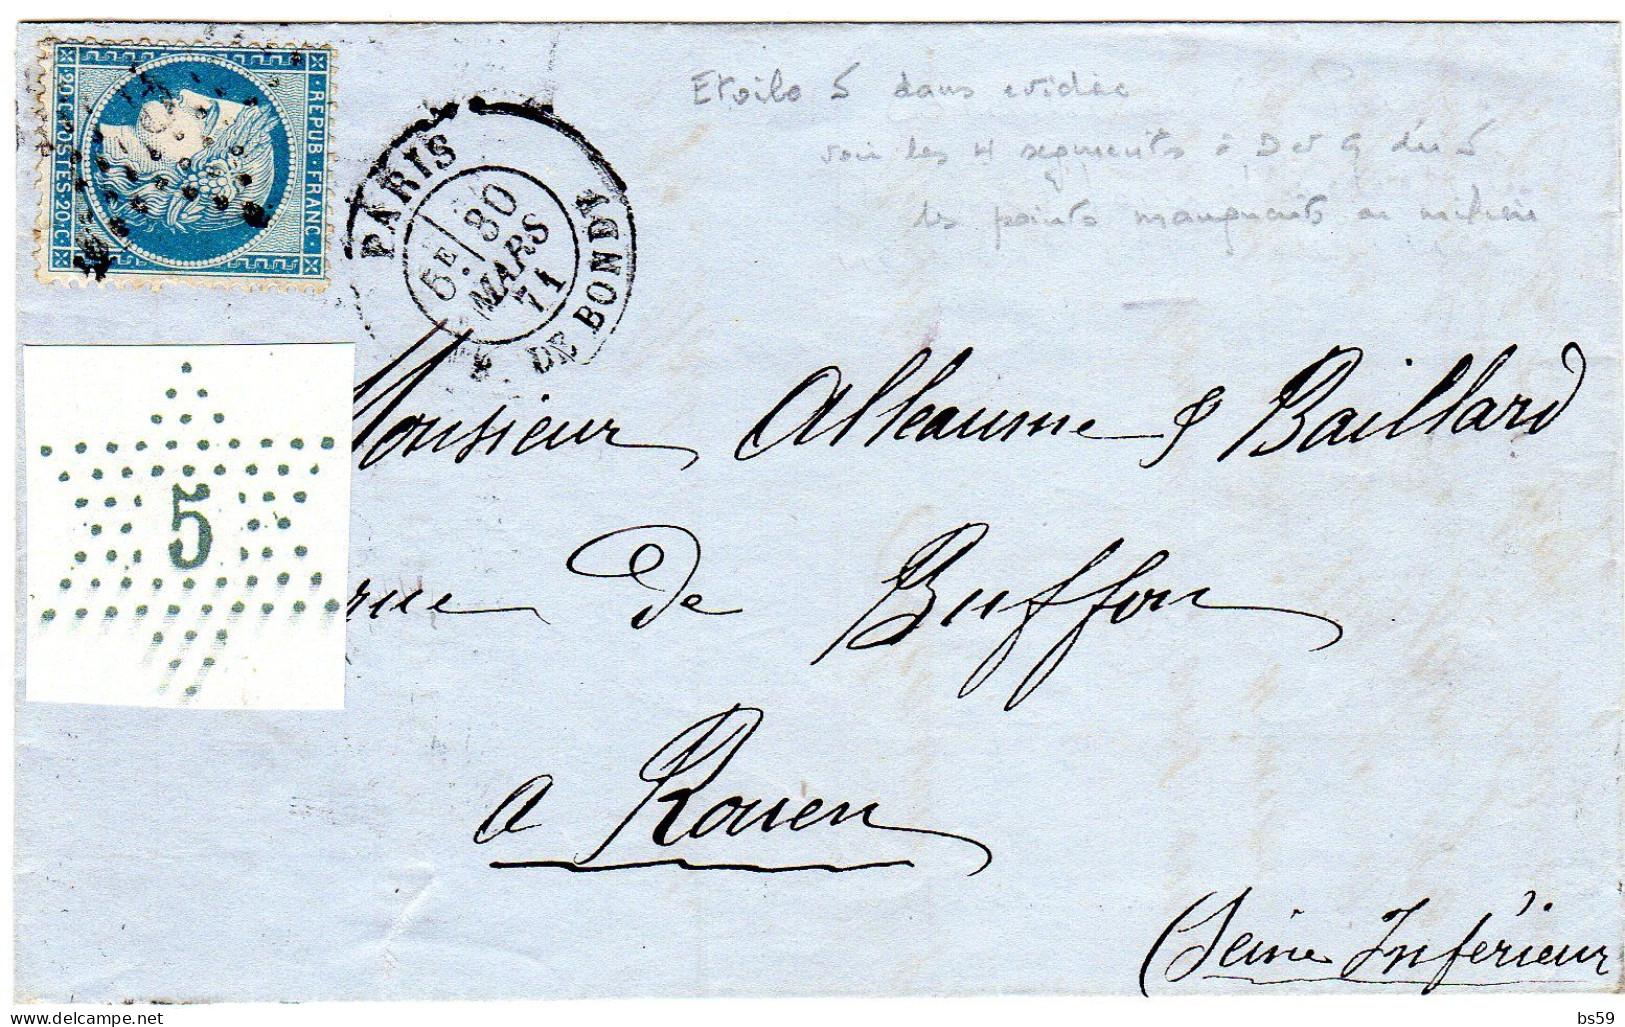 · REPUB · FRANC ·
20 · C · POSTES · 20 · C ·
PARIS
5E 30
MARS
71
DE BONDY
Etoile 5 dans evidée
voir les 4 segments à D et G du 5
les points manquants au milieu
5
Monsieur Alleaume & Baillard
rue de Buffon
a Rouen
(Seine Inférieur
www.delcampe.net
bs59